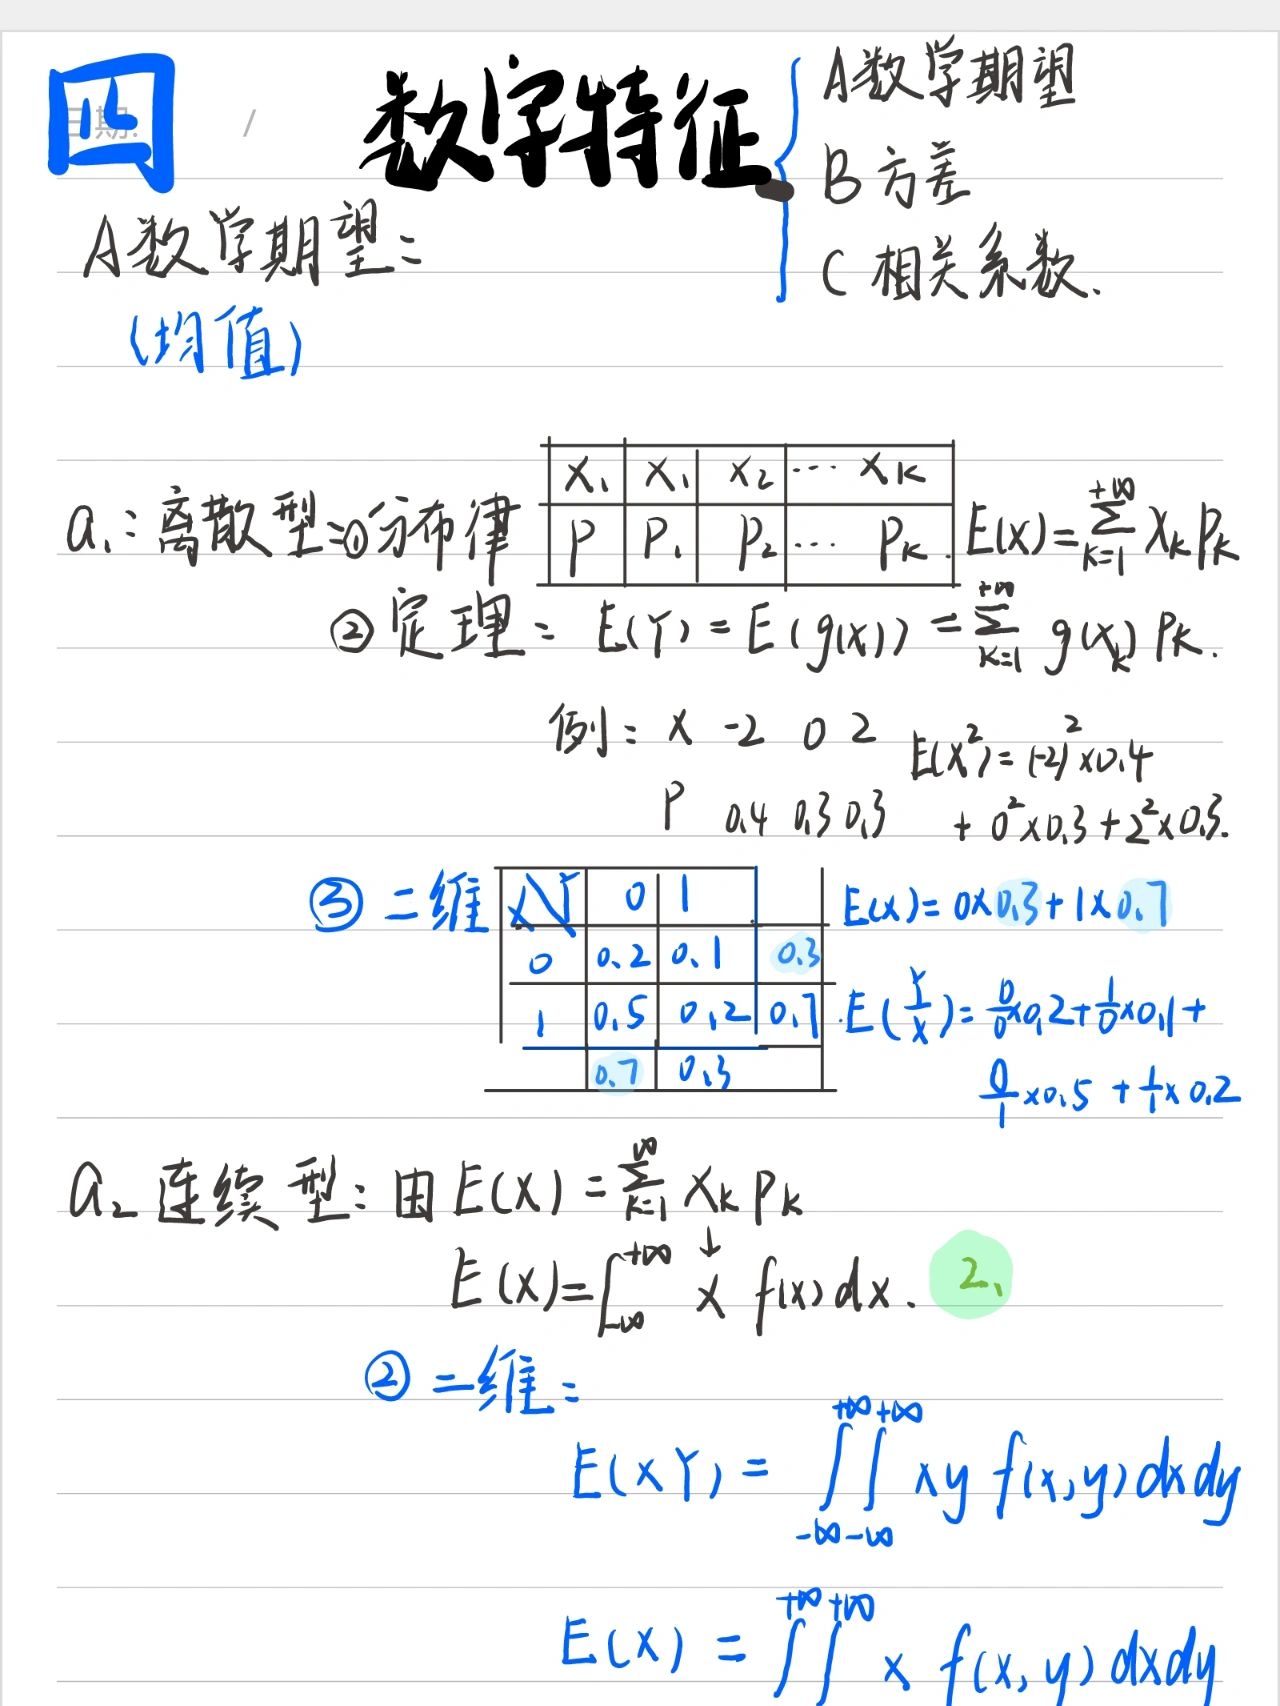 四
日期: /
数字特征
A数学期望
B 方差
C 相关系数.
A数学期望:
(均值)
a₁: 离散型:①分布律
X₁ X₁ X₂ ... Xk
P P₁ P₂ ... Pk.
E(X)=∑_{k=1}^{+∞} Xk Pk
②定理: E(Y)=E(g(X))=∑_{k=1}^{+∞} g(Xk) Pk.
例: X -2 0 2
P 0.4 0.3 0.3
E(X²)=(-2)²×0.4
+0²×0.3+2²×0.3.
③二维
X\Y 0 1
0 0.2 0.1 0.3
1 0.5 0.2 0.7
0.7 0.3
E(X)=0×0.3+1×0.7
E(Y/X)=0/0×0.2+1/0×0.1+
0/1×0.5+1/1×0.2
a₂ 连续型: 由E(X)=∑_{k=1}^{∞} Xk Pk
↓
E(X)=∫_{-∞}^{+∞} x f(x)dx. 2、
②二维:
E(XY)=∫_{-∞}^{+∞}∫_{-∞}^{+∞} xy f(x,y)dxdy
E(X)=∫^{+∞}∫^{+∞} x f(x,y)dxdy